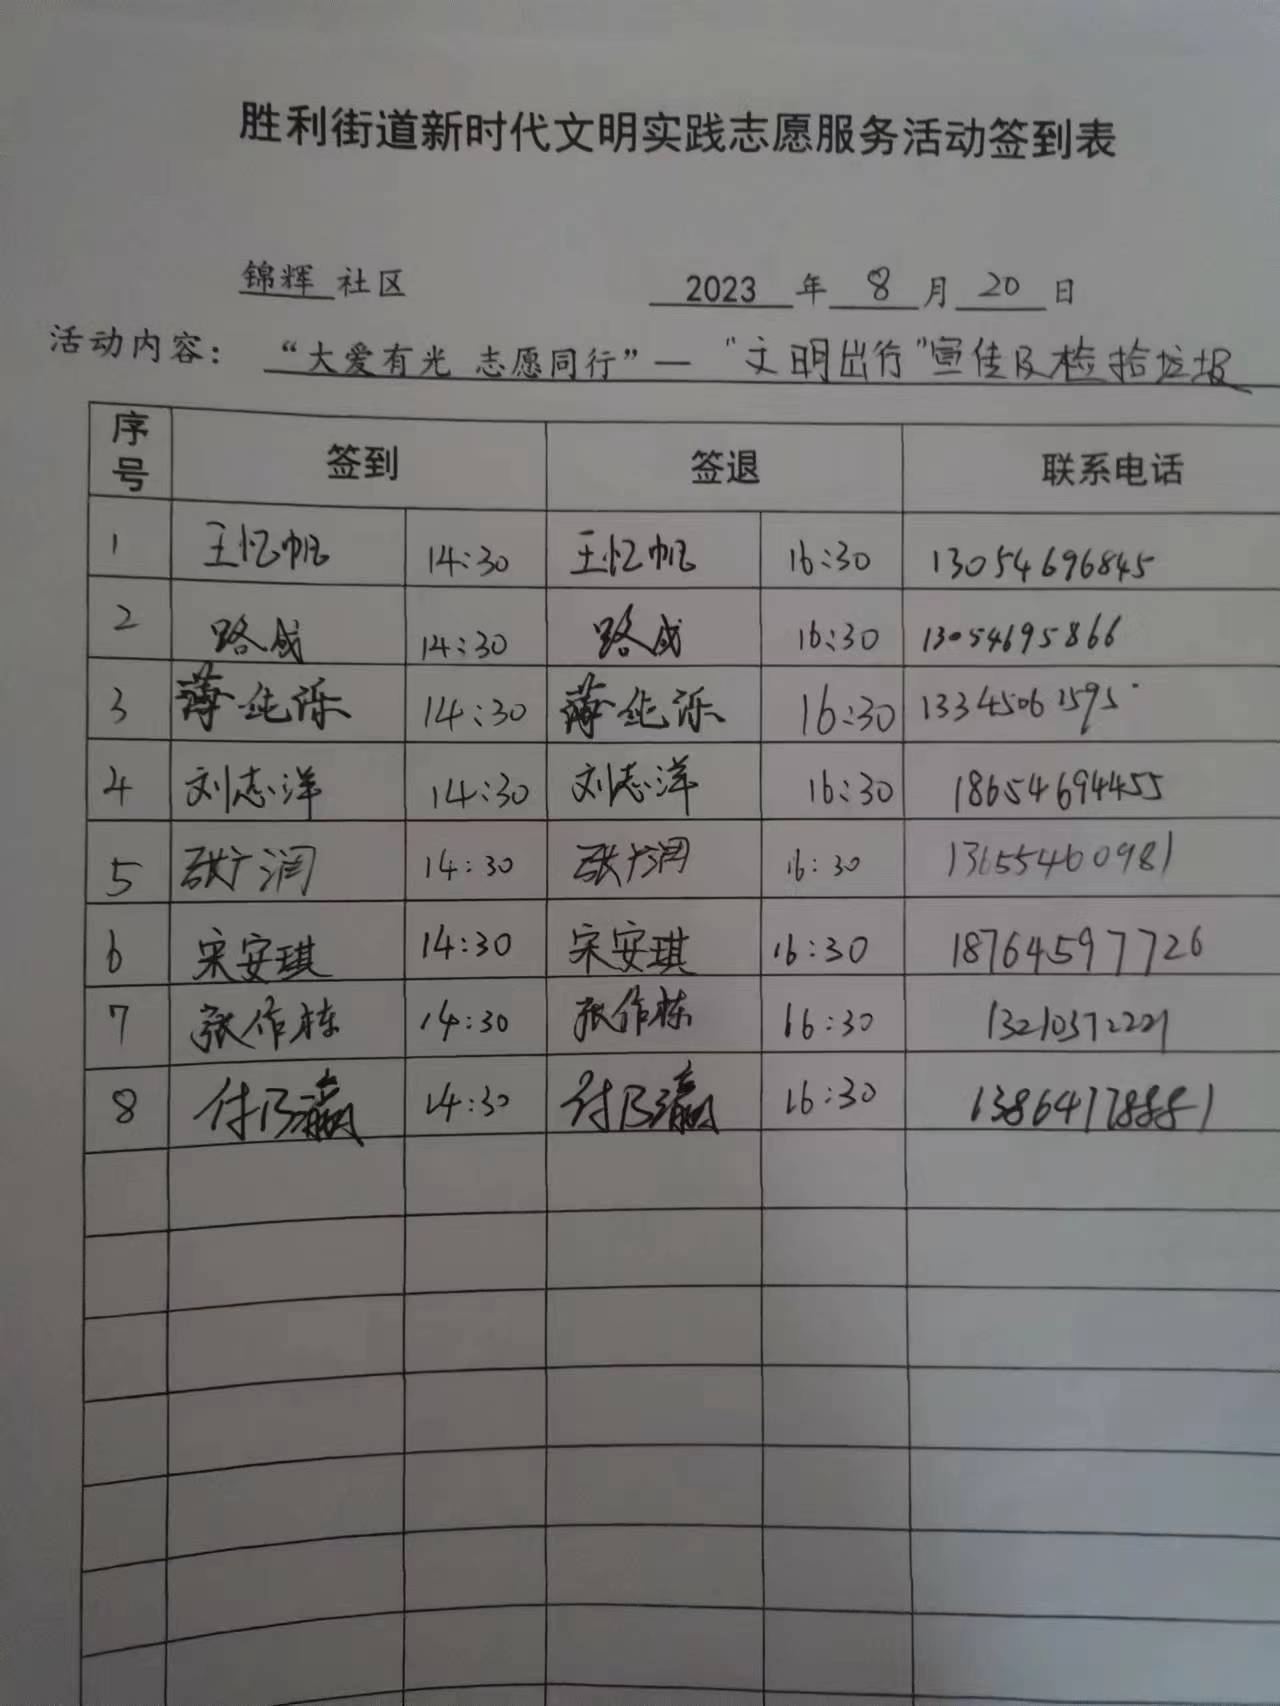 胜利街道新时代文明实践志愿服务活动签到表
锦辉 社区 2023 年 8 月 20 日
活动内容： “大爱有光 志愿同行”—“文明出行”宣传及检拾垃圾
序号 签到 签退 联系电话
1 王忆帆 14:30 王忆帆 16:30 13054696845
2 路成 14:30 路成 16:30 13054695866
3 薄纯泺 14:30 薄纯泺 16:30
4 刘志洋 14:30 刘志洋 16:30 18654694455
5 张广润 14:30 张广润 16:30 13655460981
6 宋安琪 14:30 宋安琪 16:30 18764597726
7 张作栋 14:30 张作栋 16:30
8 付乃瀛 14:30 付乃瀛 16:30 13864178881